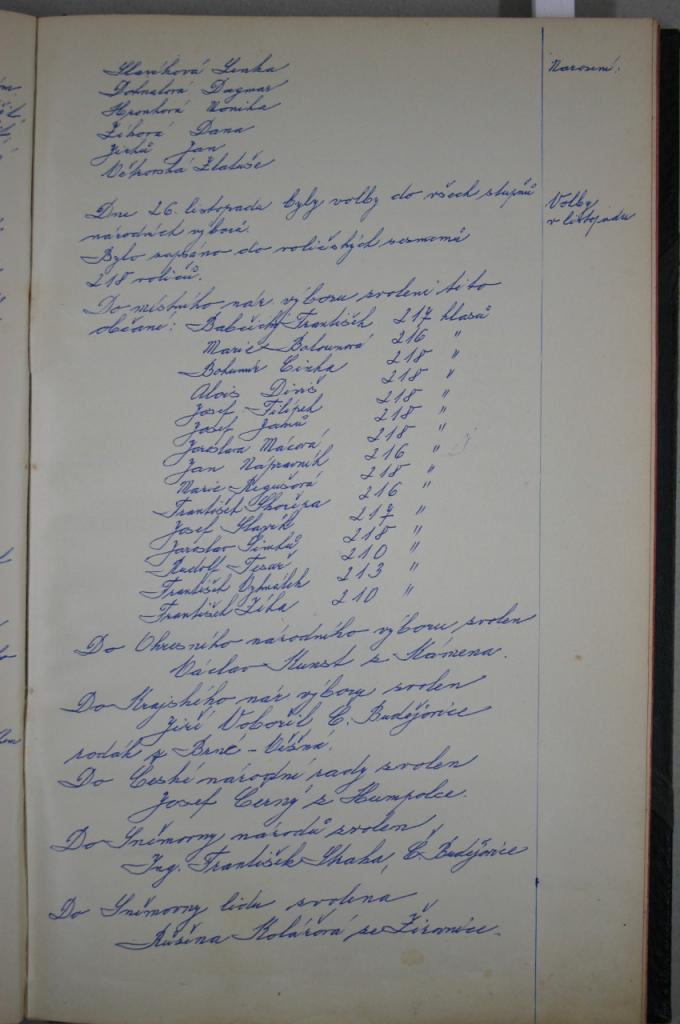 Slavíková Lenka
Dohnalová Dagmar
Hronková Monika
Zíhová Dana
Jirků Jan
Větrovská Zlatuše
Narození:
Dne 26. listopadu byly volby do všech stupňů
národních výborů.
Volby
v listopadu
Bylo zapsáno do voličských seznamů
218 voličů.
Do místního nár. výboru zvoleni tito
občané: Babický František 217 hlasů
Marie Bolounová 216 "
Bohumír Cinka 218 "
Alois Diviš 218 "
Josef Filípek 218 "
Josef Janů 218 "
Jaroslava Mácová 218 "
Jan Nápravník 216 "
Marie Regušová 218 "
František Skořepa 216 "
Josef Slavík 217 "
Jaroslav Šimků 218 "
Rudolf Tesař 210 "
František Vytisálek 213 "
František Zíka 210 "
Do Okresního národního výboru zvolen
Václav Kunst z Kámena.
Do Krajského nár. výboru zvolen
Jiří Vobořil Č. Budějovice
rodák z Brné - Višné.
Do České národní rady zvolen
Josef Černý z Humpolce.
Do Sněmovny národů zvolen
Ing. František Straka, Č. Budějovice
Do Sněmovny lidu zvolena
Růžena Kolářová ze Žirovnice.